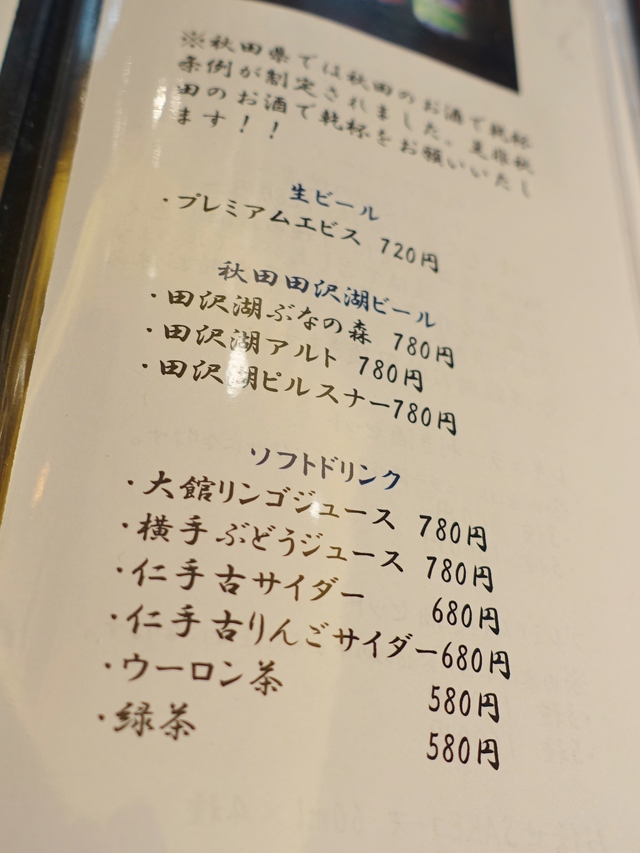 ※秋田県では秋田のお酒で乾杯
条例が制定されました。是非秋
田のお酒で乾杯をお願いいたし
ます！！
生ビール
・プレミアムエビス 720円
秋田田沢湖ビール
・田沢湖ぶなの森 780円
・田沢湖アルト 780円
・田沢湖ピルスナー780円
ソフトドリンク
・大館リンゴジュース 780円
・横手ぶどうジュース 780円
・仁手古サイダー 680円
・仁手古りんごサイダー680円
・ウーロン茶 580円
・緑茶 580円